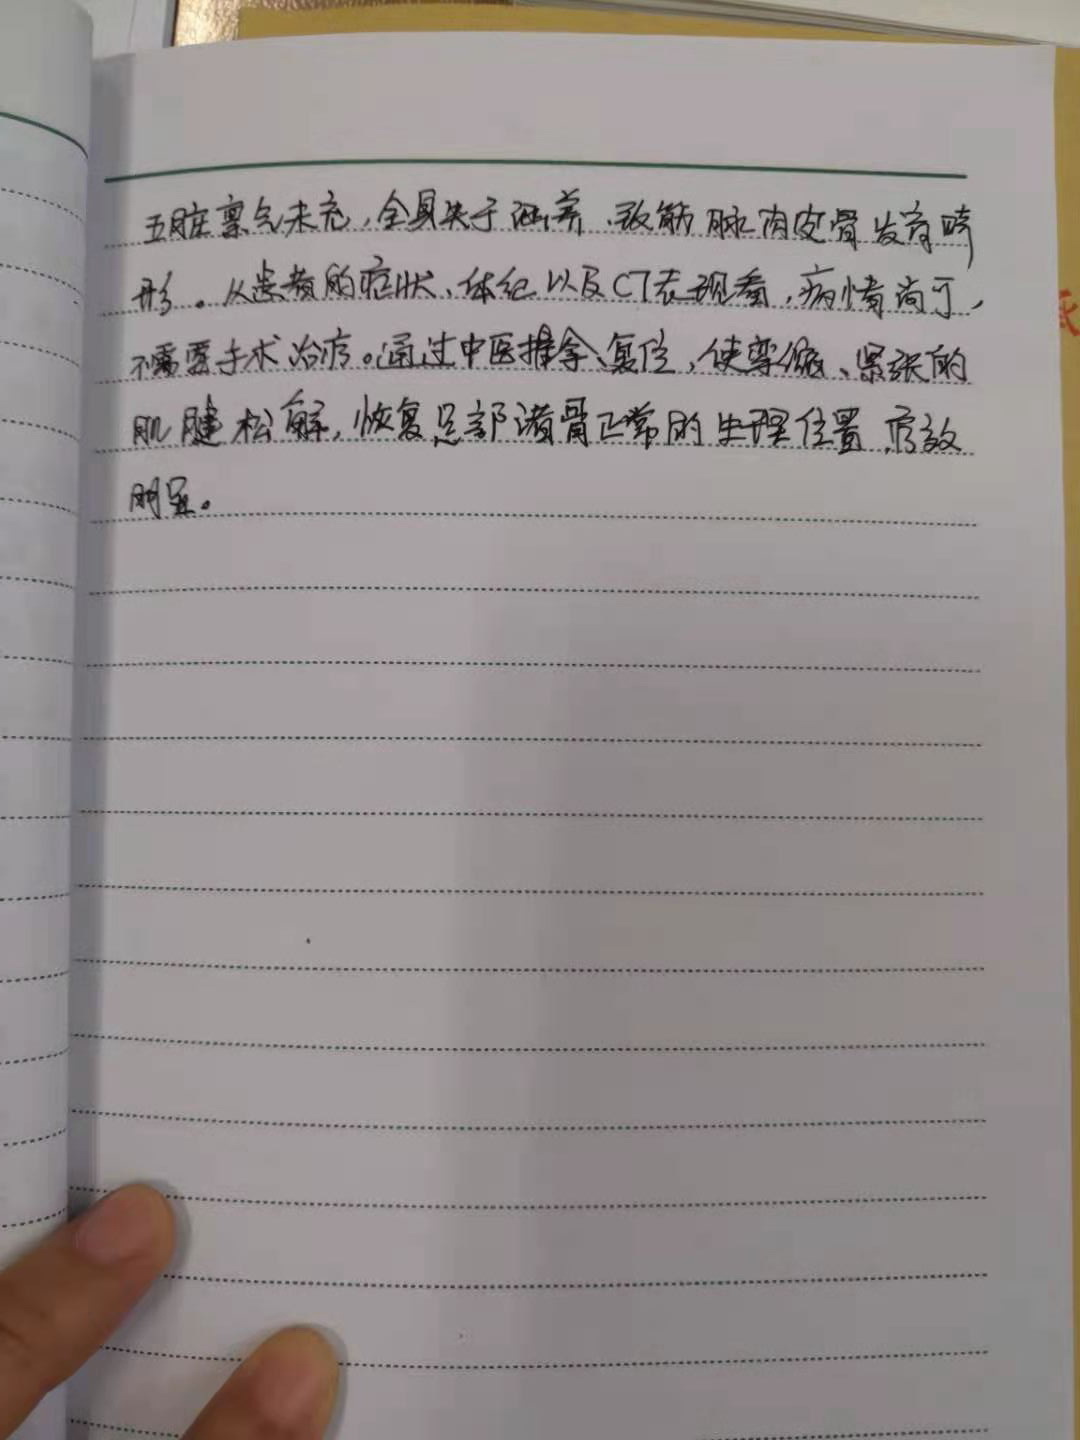 五脏禀气未充，全身失于涵养，致筋脉肉皮骨发育畸
形。从患者的症状、体纪以及CT表现看，病情尚可，
不需要手术治疗。通过中医推拿、复位，使挛缩、紧张的
肌腱松解，恢复足部诸骨正常的生理位置，疗效
明显。